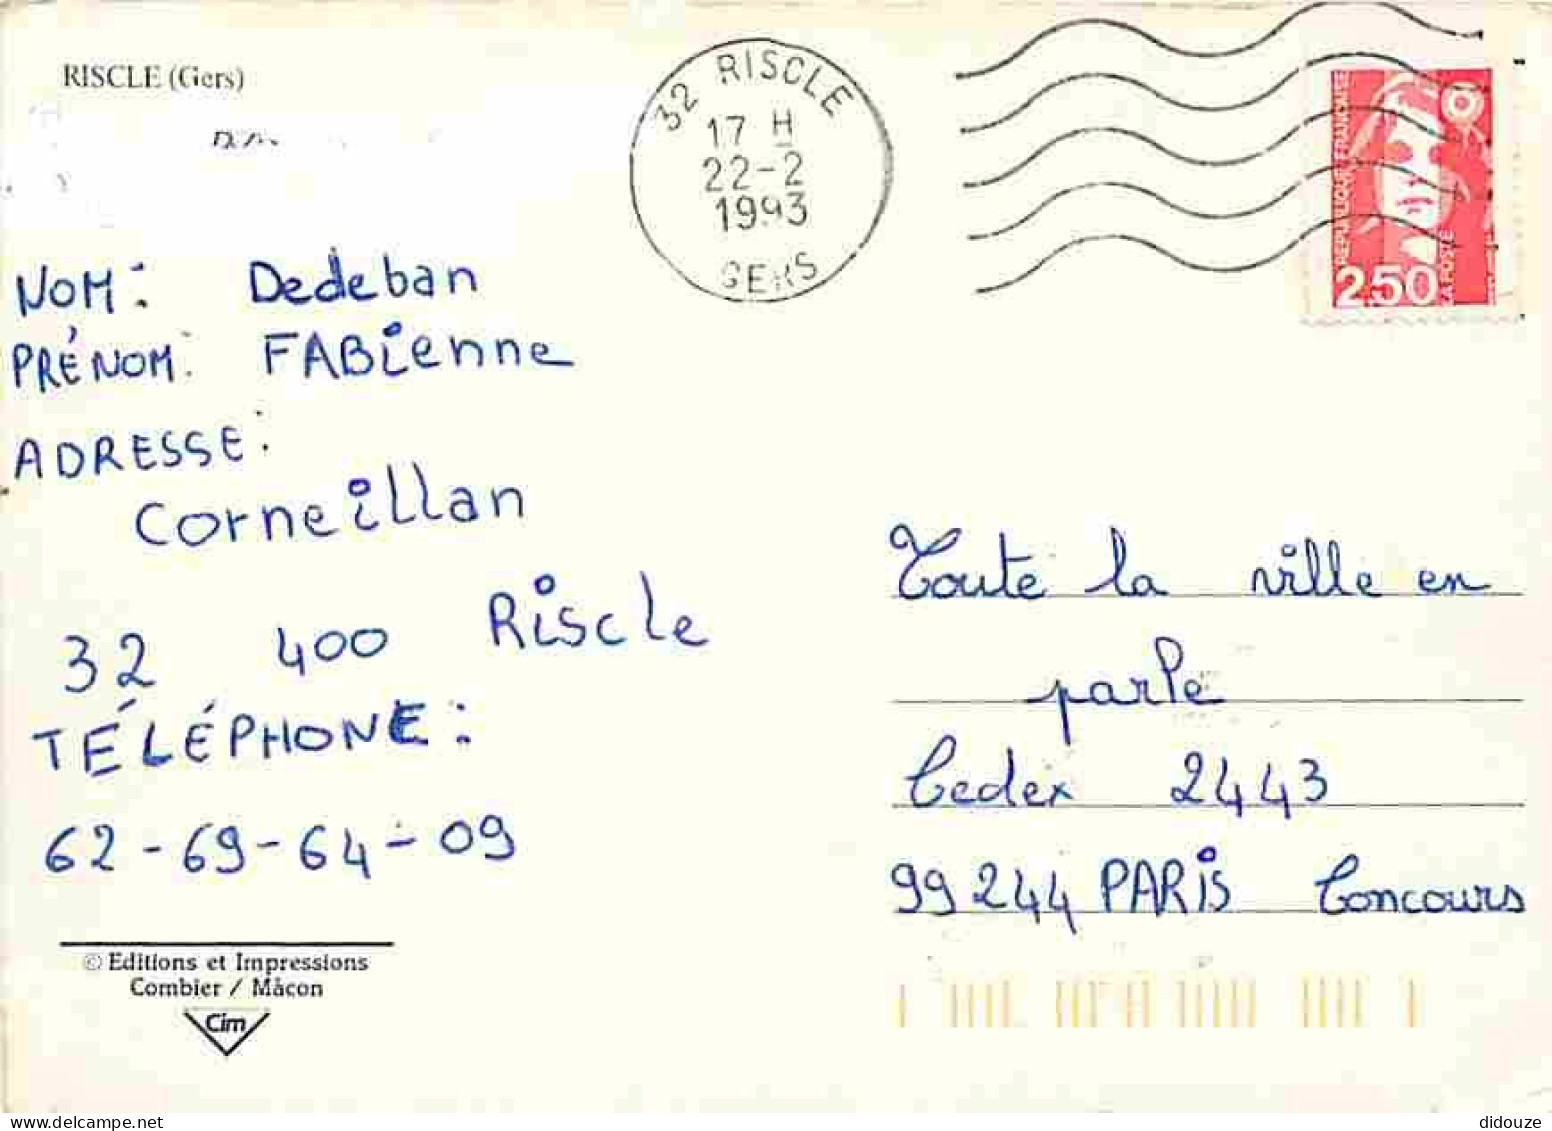 RISCLE (Gers)
32 RISCLE
17 H
22-2
1993
GERS
REPUBLIQUE FRANCAISE
LA POSTE
2,50
NOM: Dedeban
PRÉNOM: FABienne
ADRESSE:
Corneillan
32 400 Riscle
TÉLÉPHONE:
62-69-64-09
Toute la ville en
parle
Cedex 2443
99244 PARIS Concours
© Editions et Impressions
Combier / Mâcon
Cim
didouze